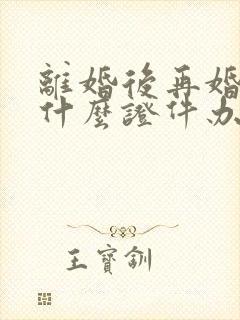 離婚後再婚
什麼證件办
王寶釧